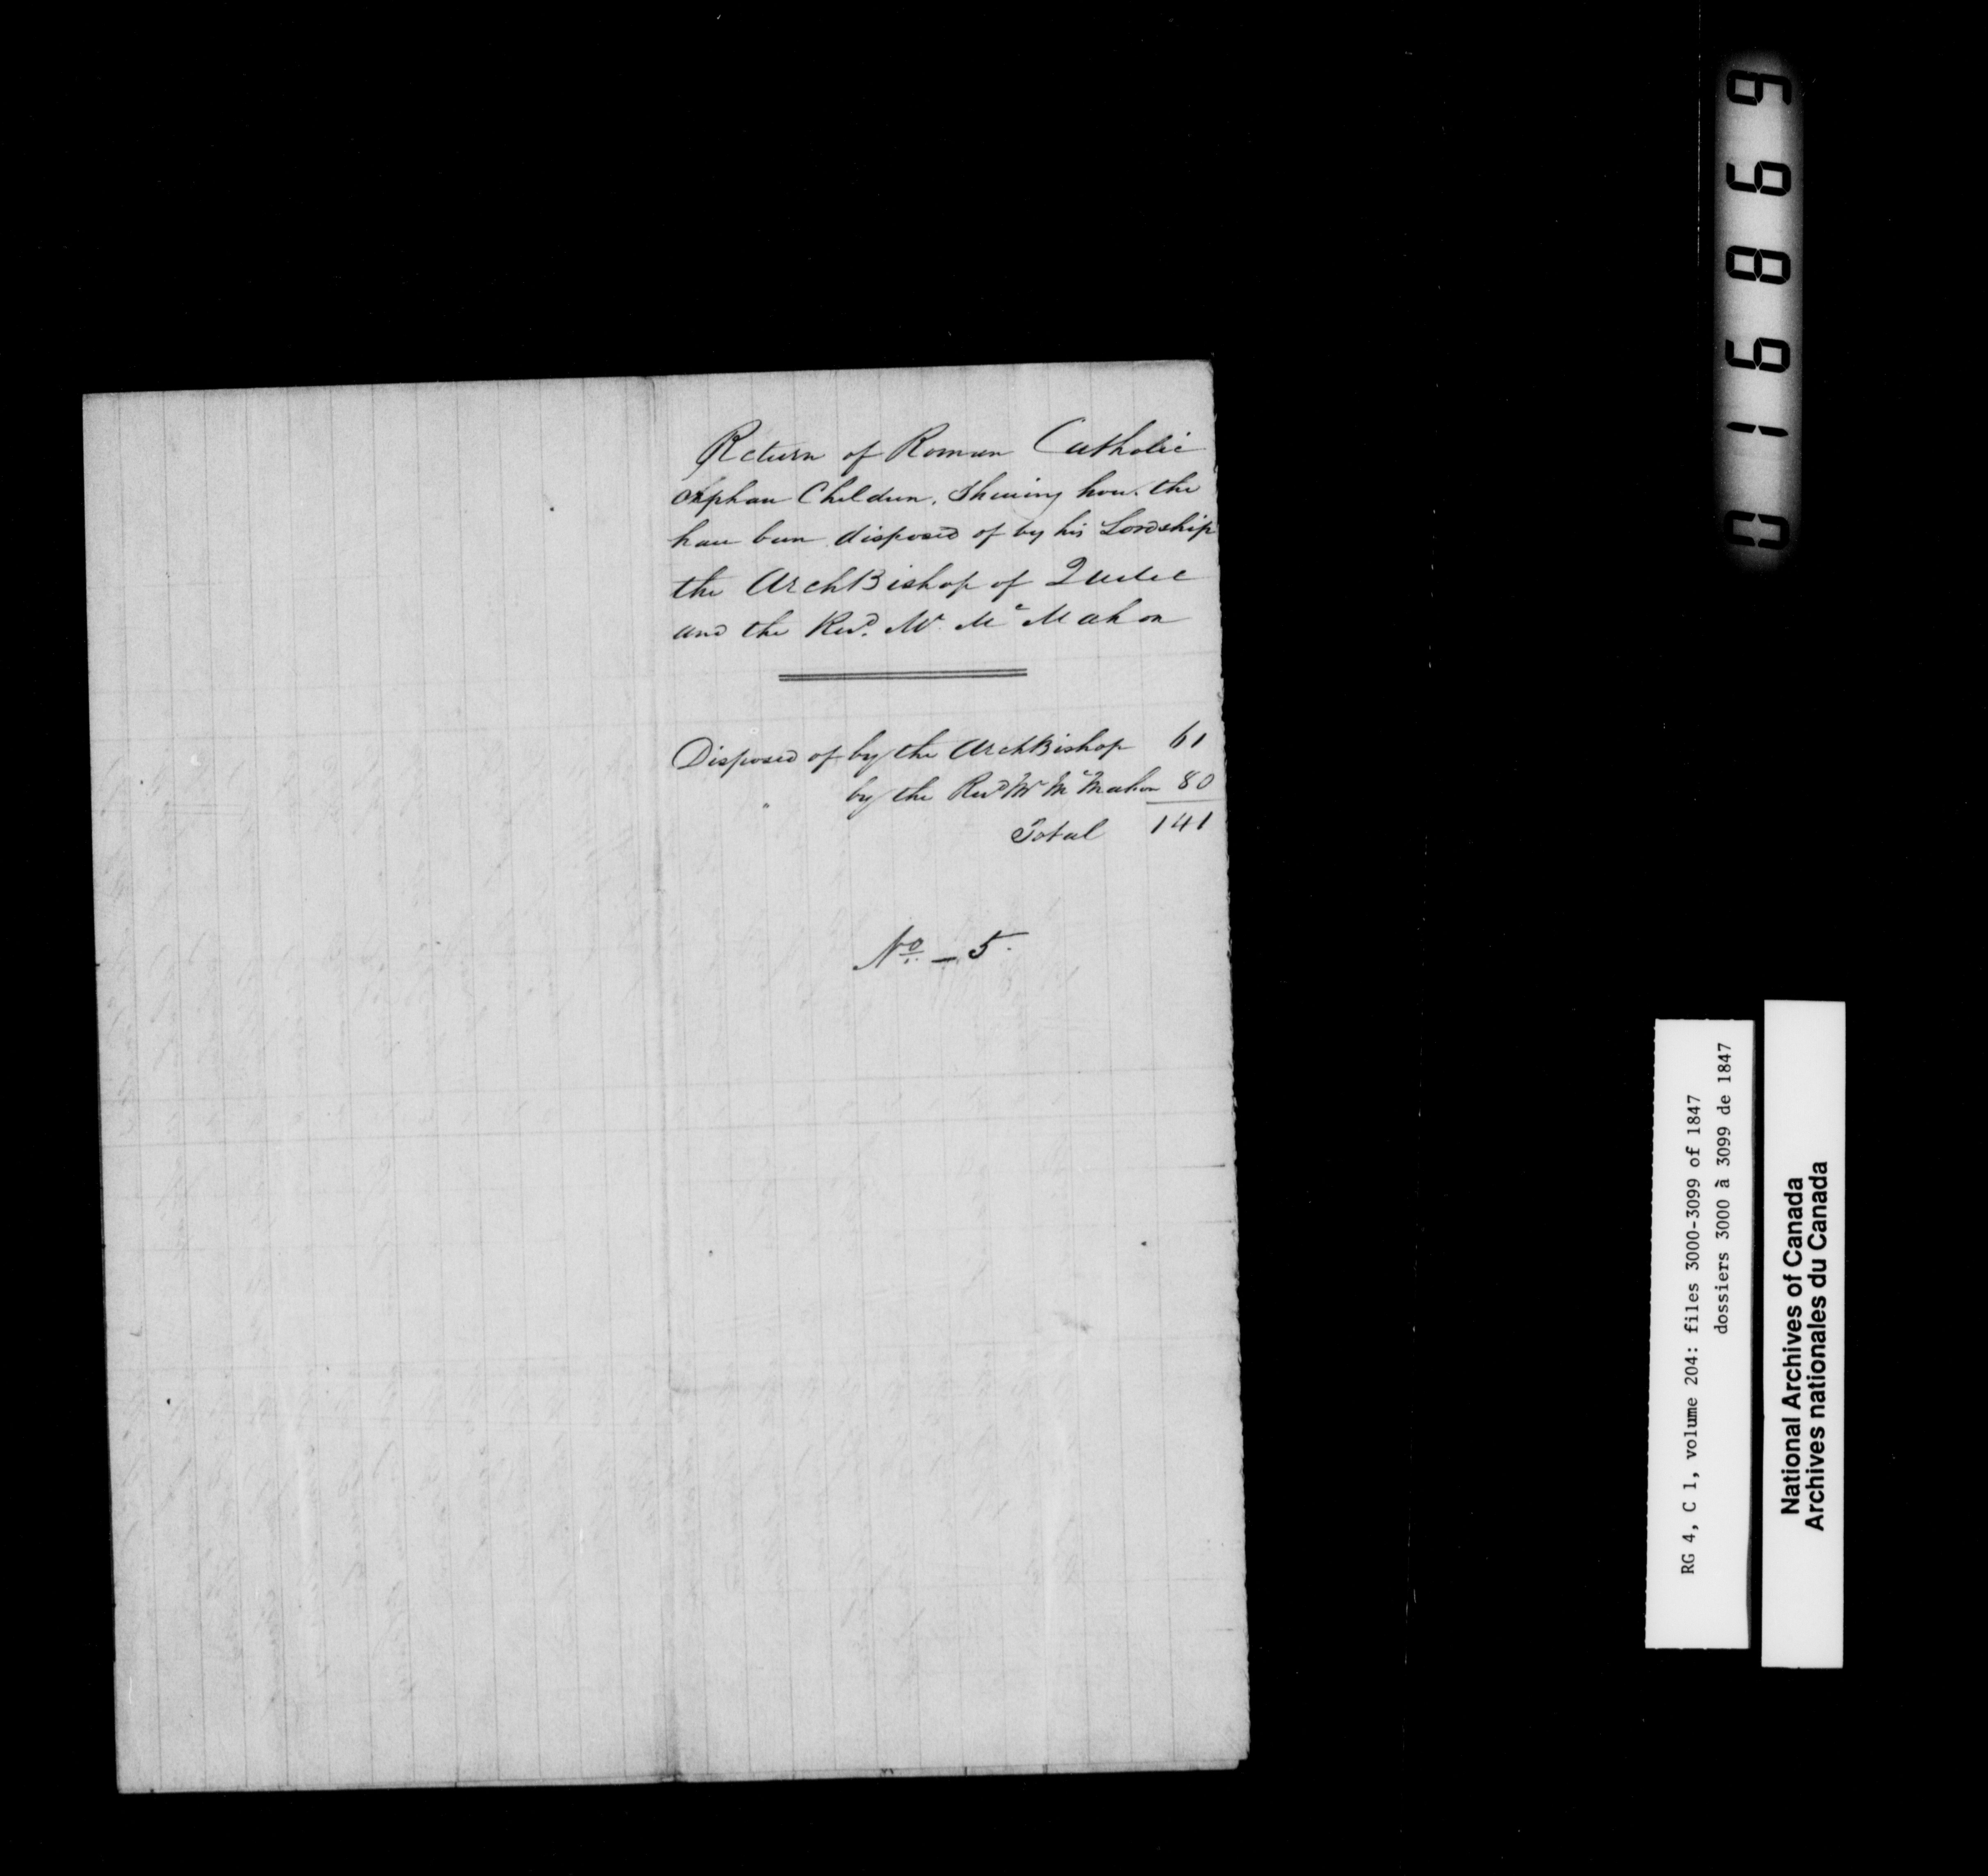 Return of Roman Catholic
Orphan Children, Shewing how the
have been disposed of by his Lordship
the ArchBishop of Quebec
and the Revd. Mr. Mc Mahon
Disposed of by the ArchBishop 61
" by the Revd Mr Mc Mahon 80
Total 141
No. _ 5.
016869
RG 4, C 1, volume 204: files 3000-3099 of 1847
dossiers 3000 à 3099 de 1847
National Archives of Canada
Archives nationales du Canada